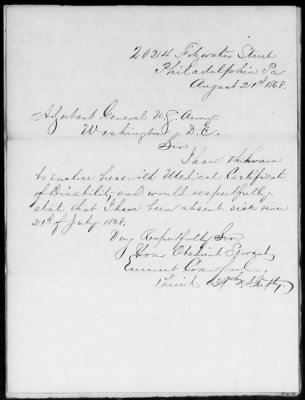 2024 Fitzwater Street
Philadelphia Pa
August 21st 1868.
Adjutant General U.S. Army.
Washington D.C.
Sir,
I have the honor
to enclose herewith Medical Certificate
of Disability and would respectfully
state that I have been absent sick since
21st of July 1868.
Very Respectfully Sir
Your Obedient Servant
Emmet Crawford
1st Lieut 39th U.S. Infty.